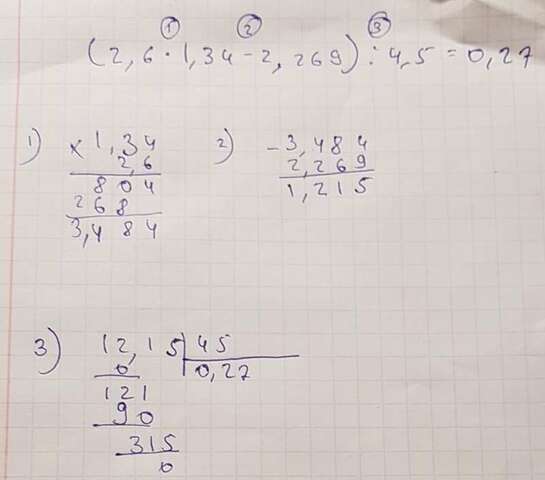 ① ② ③
(2,6·1,34-2,269):4,5=0,27
1) ×1,34
2,6
804
268
3,484
2) -3,484
2,269
1,215
3) 12,15|45
0 0,27
121
90
315
0